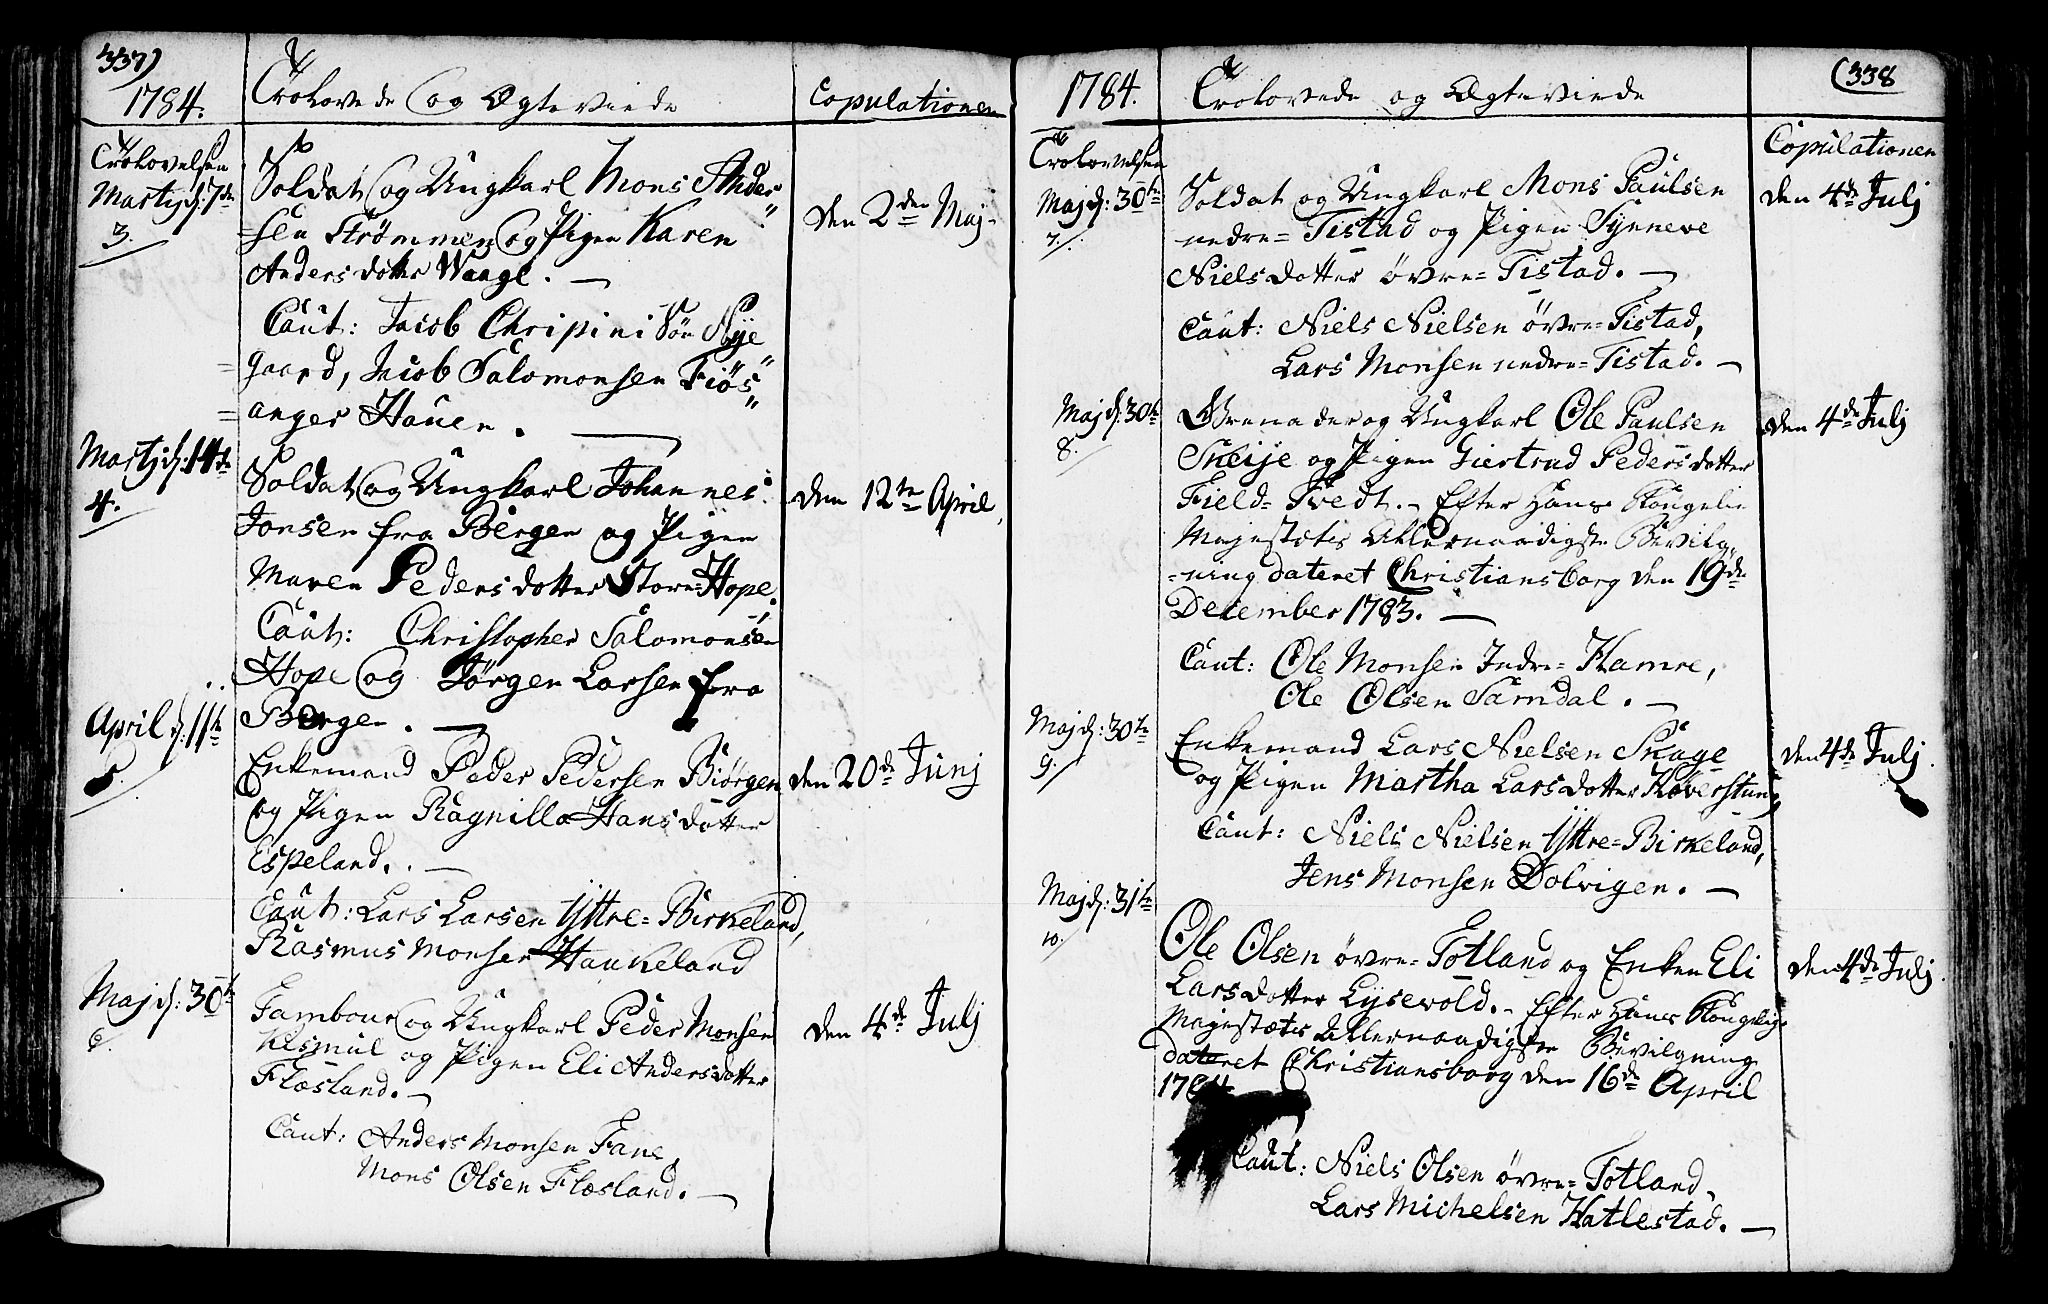 337)
1784.
Trolovede og Ægteviede
Copulationen
Trolovelsen
Martij d: 7de
3.
Soldat og Ungkarl Mons Ander„
=sen Strømmen og Pigen Karen
Anders dotter Waage. —
den 2den Maj
Caut: Jacob Chrispini Søn Nye„
=gaard, Jacob Salomonsen Fiøs„
=anger Hauen. —
Martij d: 14de
4.
Soldat og Ungkarl Johannes
Jonsen fra Bergen og Pigen
Maren Peders dotter Store-Hope.
den 12te April
Caut: Christopher Salomonsen
Hope og Jørgen Larsen fra
Bergen. —
April d: 11te
5.
Enkemand Peder Pedersen Biørgen
og Pigen Ragnilla Hans dotter
Espeland. —
den 20de Junj
Caut: Lars Larsen Yttre=Birkeland,
Rasmus Monsen Haukeland
Maj d: 30te
6.
Tambour og Ungkarl Peder Monsen
Klesmul og Pigen Eli Anders dotter
Flæsland. —
den 4de Julj
Caut: Anders Monsen Fane,
Mons Olsen Flæsland. —
1784.
Trolovede og Ægteviede
(338
Trolovelsen
Copulationen
Maj d: 30te
7.
Soldat og Ungkarl Mons Paulsen
nedre=Tistad og Pigen Synneve
Niels dotter øvre=Tistad. —
den 4de Julj
Caut: Niels Nielsen øvre=Tistad,
Lars Monsen nedre=Tistad. —
Maj d: 30te
8.
Grenader og Ungkarl Ole Paulsen
Sneije og Pigen Giertrud Peders dotter
Field=Tvedt. — Efter Hans Kongelige
Majestætis Allernaadigste Bevilg„
=ning dateret Christiansborg den 19de
December 1783. —
den 4de Julj
Caut: Ole Monsen Indre=Hamre,
Ole Olsen Samdal. —
Maj d: 30te
9.
Enkemand Lars Nielsen Skage
og Pigen Martha Lars dotter Røverstuen,
den 4de Julj.
Caut: Niels Nielsen Yttre=Birkeland,
Jens Monsen Dolvigen. —
Maj d: 31te
10.
Ole Olsen øvre=Totland og Enken Eli
Lars dotter Lysevold. — Efter Hans Kongelige
Majestætis Allernaadigste Bevilgning
dateret Christiansborg den 16de April
1784
den 4de Julj.
Caut: Niels Olsen øvre=Totland,
Lars Michelsen Hatlestad. —